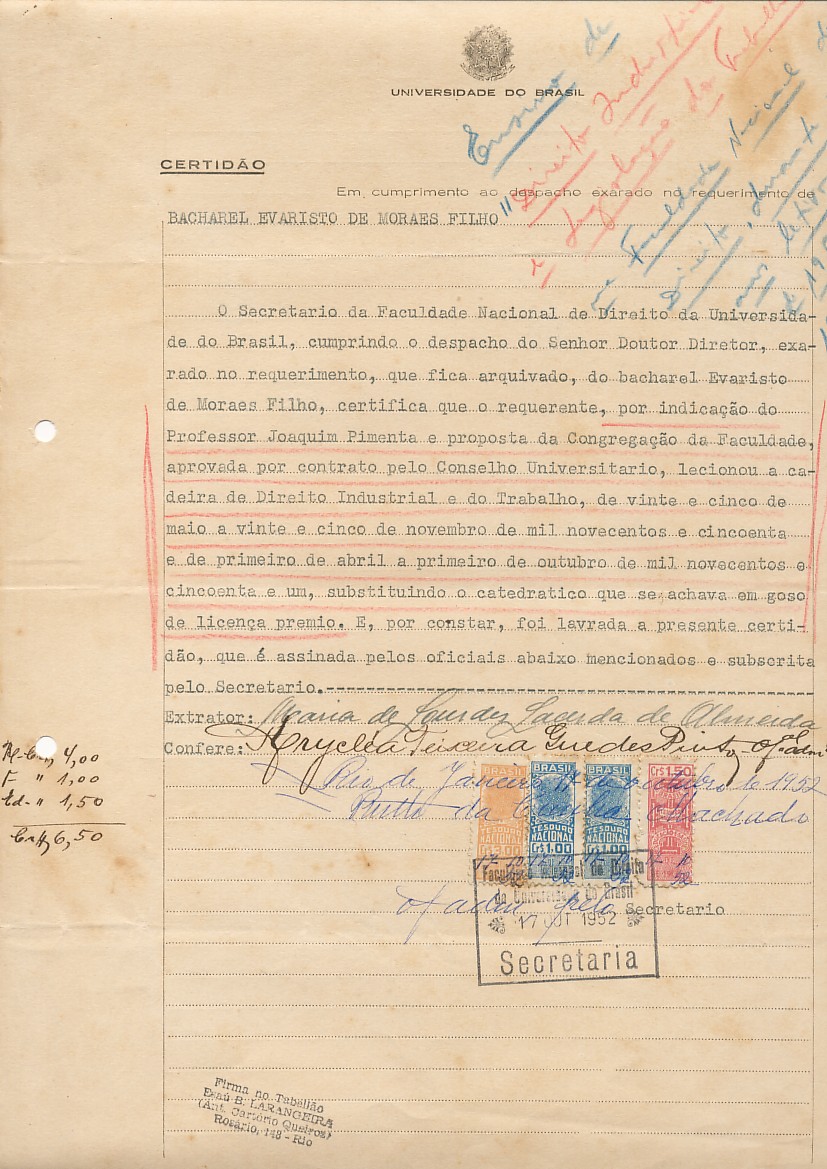 UNIVERSIDADE DO BRASIL
Ensino de
"Direito Industrial
e Legislação do Trabalho
na Faculdade Nacional de
Direito, durante
CERTIDÃO
Em cumprimento ao despacho exarado no requerimento de
BACHAREL EVARISTO DE MORAES FILHO
O Secretario da Faculdade Nacional de Direito da Universida-
de do Brasil, cumprindo o despacho do Senhor Doutor Diretor, exa-
rado no requerimento, que fica arquivado, do bacharel Evaristo
de Moraes Filho, certifica que o requerente, por indicação do
Professor Joaquim Pimenta e proposta da Congregação da Faculdade,
aprovada por contrato pelo Conselho Universitario, lecionou a ca-
deira de Direito Industrial e do Trabalho, de vinte e cinco de
maio a vinte e cinco de novembro de mil novecentos e cincoenta
e de primeiro de abril a primeiro de outubro de mil novecentos e
cincoenta e um, substituindo o catedratico que se achava em goso
de licença premio. E, por constar, foi lavrada a presente certi-
dão, que é assinada pelos oficiais abaixo mencionados e subscrita
pelo Secretario.-----------------------------------------
Extrator: Maria de Lourdes Lacerda de Almeida
Confere: Arycléa Teixeira Guedes Pinto, of. adm
4,00
F. " 1,00
Ed. " 1,50
6,50
Rio de Janeiro 17 de outubro de 1952
da Cunha Machado
BRASIL
TESOURO NACIONAL
BRASIL
TESOURO NACIONAL
Cr$ 1,00
BRASIL
TESOURO NACIONAL
Cr$ 1,00
Cr$ 1,50
of adm pelo Secretario
Faculdade Nacional de Direito
da Universidade do Brasil
17 OUT 1952
Secretaria
Firma no Tabelião
Esaú B. LARANGEIRA
(Ant. Cartório Queiroz)
Rosário, 148 - Rio